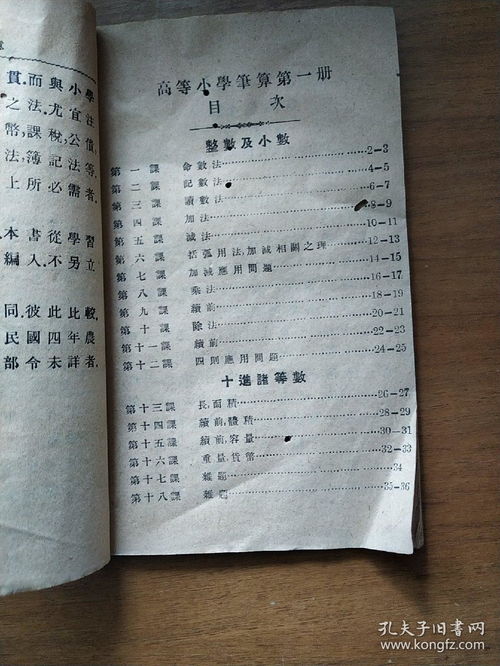 高等小學筆算第一册
目次
整數及小數
第一課 命數法 2-3
第二課 記數法 4-5
第三課 讀數法 6-7
第四課 加法 8-9
第五課 減法 10-11
第六課 括弧用法,加減相關之理 12-13
第七課 加減應用問題 14-15
第八課 乘法 16-17
第九課 續前 18-19
第十課 除法 20-21
第十一課 續前 22-23
第十二課 四則應用問題 24-25
十進諸等數
第十三課 長,面積 26-27
第十四課 續前,體積 28-29
第十五課 續前,容量 30-31
第十六課 重量,貨幣 32-33
第十七課 雜題 34
第十八課 雜題 35-36
學小與而貫
注宜尤法,之
債,公稅,課幣,
等.法記簿法,
者.需必所上
習學從書本
立另不入.編
較,比此彼同
農年四國民
者.詳未令部
孔夫子旧书网
www.kongfz.com